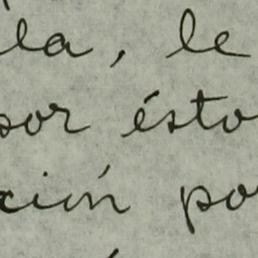 la, le
por ésto
ción po